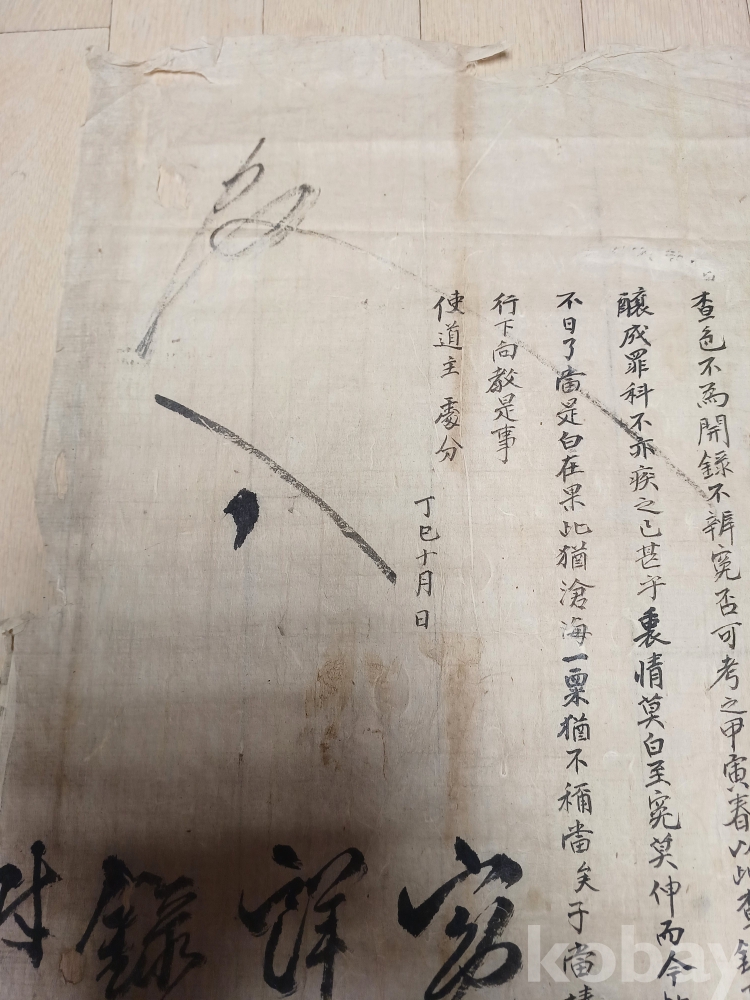 查色不爲開錄不辨寃否可考之甲寅春以此查
釀成罪科不亦疾之已甚乎裏情莫白至寃莫伸而今
不日了當是白在果此猶滄海一粟猶不稱當矣子當
行下向教是事
使道主 處分
丁巳十月日
詳錄
kobay